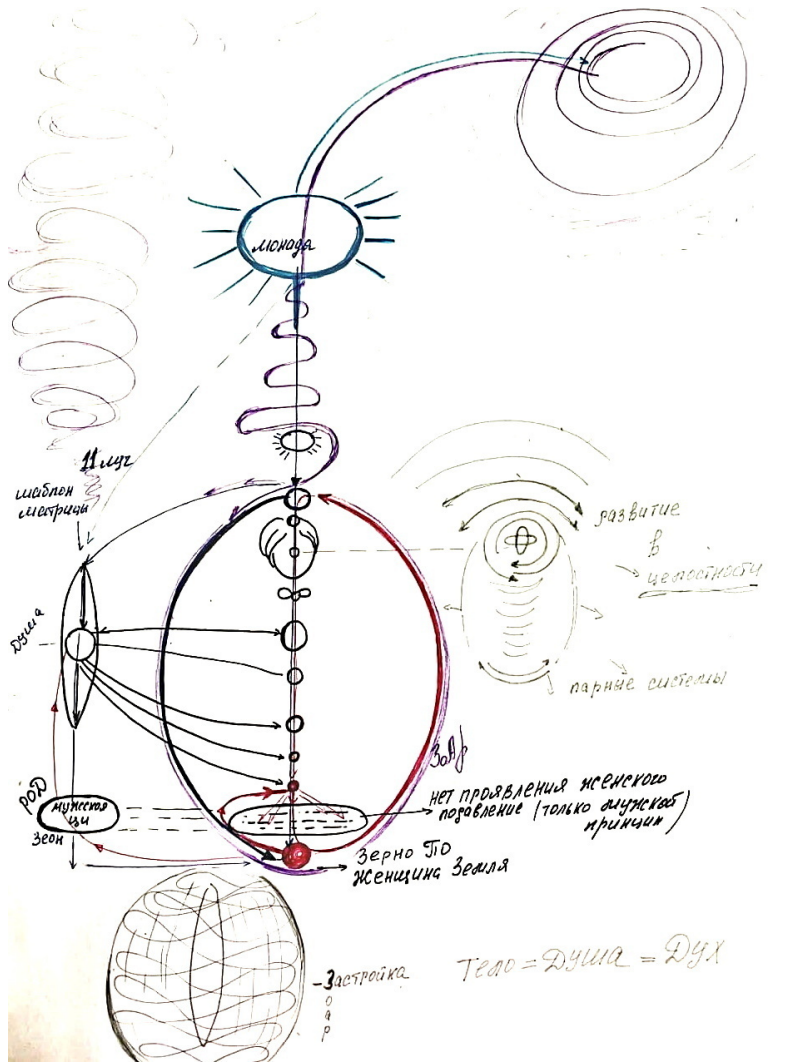 монада
11 луч
шаблон
матрицы
Душа
развитие
в
целостности
парные системы
РОД
мужская
ци
Зеон
нет проявления женского
подавление (только мужской
принцип)
Зерно ПО
Женщина Земля
- Застройка
о
а
р
Тело = Душа = Дух